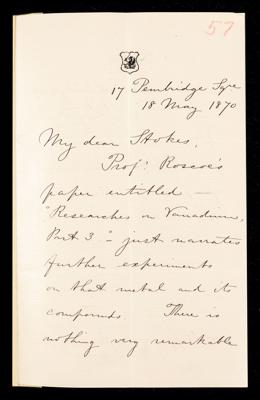 57
17 Pembridge Sqre
18 May 1870
My dear Stokes,
Prof: Roscoe's
paper entitled —
"Researches on Vanadium,
Part 3" — just narrates
further experiments
on that metal and its
compounds. There is
nothing very remarkable